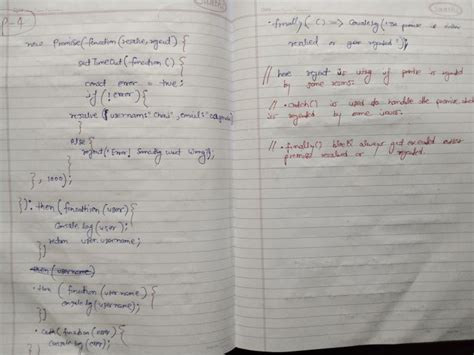 P-4
new Promise(function(resolve, reject) {
setTimeOut(function() {
const error = true;
if (!error) {
resolve({ username:"
else {
reject('Error! went wrong');
}, 1000);
}). then(function(user) {
console.log(user);
return user.username;
})
then(username)
. then (function(username) {
console.log(username);
})
. catch (function(error) {
console.log(error);
.finally( () => Console.log( promise is
resolved or rejected');
// here reject is if promise is rejected
by some reason.
// .catch() is used to handle the promise
is rejected by some
// .finally() block always get executed
promised resolved or rejected.